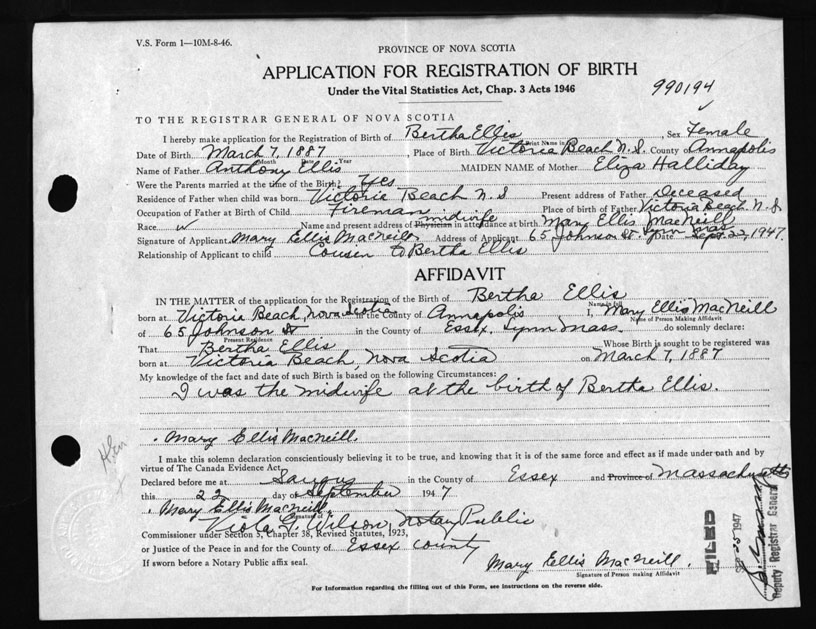 V.S. Form 1—10M-8-46.
PROVINCE OF NOVA SCOTIA
APPLICATION FOR REGISTRATION OF BIRTH
Under the Vital Statistics Act, Chap. 3 Acts 1946
990194
TO THE REGISTRAR GENERAL OF NOVA SCOTIA
I hereby make application for the Registration of Birth of Bertha Ellis, Sex Female
Print Name in full
Date of Birth March 7, 1887, Place of Birth Victoria Beach N.S. County Annapolis
Month Date Year
Name of Father Anthony Ellis MAIDEN NAME of Mother Eliza Halliday
Were the Parents married at the time of the Birth? Yes
Residence of Father when child was born Victoria Beach N.S Present address of Father Deceased
Occupation of Father at Birth of Child Fireman Place of birth of Father Victoria Beach N.S
Race W Name and present address of Physician midwife in attendance at birth Mary Ellis MacNeill
Signature of Applicant Mary Ellis MacNeill Address of Applicant 65 Johnson St. Lynn Mass Date Sept. 22, 1947.
Relationship of Applicant to child Cousin to Bertha Ellis
AFFIDAVIT
IN THE MATTER of the application for the Registration of the Birth of Bertha Ellis
Name in full
born at Victoria Beach, Nova Scotia in the County of Annapolis I, Mary Ellis MacNeill
Name of Person Making Affidavit
of 65 Johnson St in the County of Essex, Lynn Mass. do solemnly declare:
Present Residence
That Bertha Ellis Whose Birth is sought to be registered was
born at Victoria Beach, Nova Scotia on March 7, 1887
My knowledge of the fact and date of such Birth is based on the following Circumstances:
I was the midwife at the birth of Bertha Ellis.
Mary Ellis MacNeill.
I make this solemn declaration conscientiously believing it to be true, and knowing that it is of the same force and effect as if made under oath and by
virtue of The Canada Evidence Act.
Declared before me at Saugus in the County of Essex and Province of Massachusetts
this 22 day of September 1947
Mary Ellis MacNeill.
Signature of
Viola G. Wilson, Notary Public
Commissioner under Section 5, Chapter 38, Revised Statutes, 1923,
or Justice of the Peace in and for the County of Essex County
If sworn before a Notary Public affix seal.
Mary Ellis MacNeill.
Signature of Person making Affidavit
For Information regarding the filling out of this Form, see instructions on the reverse side.
FILED
25 1947
Deputy Registrar General